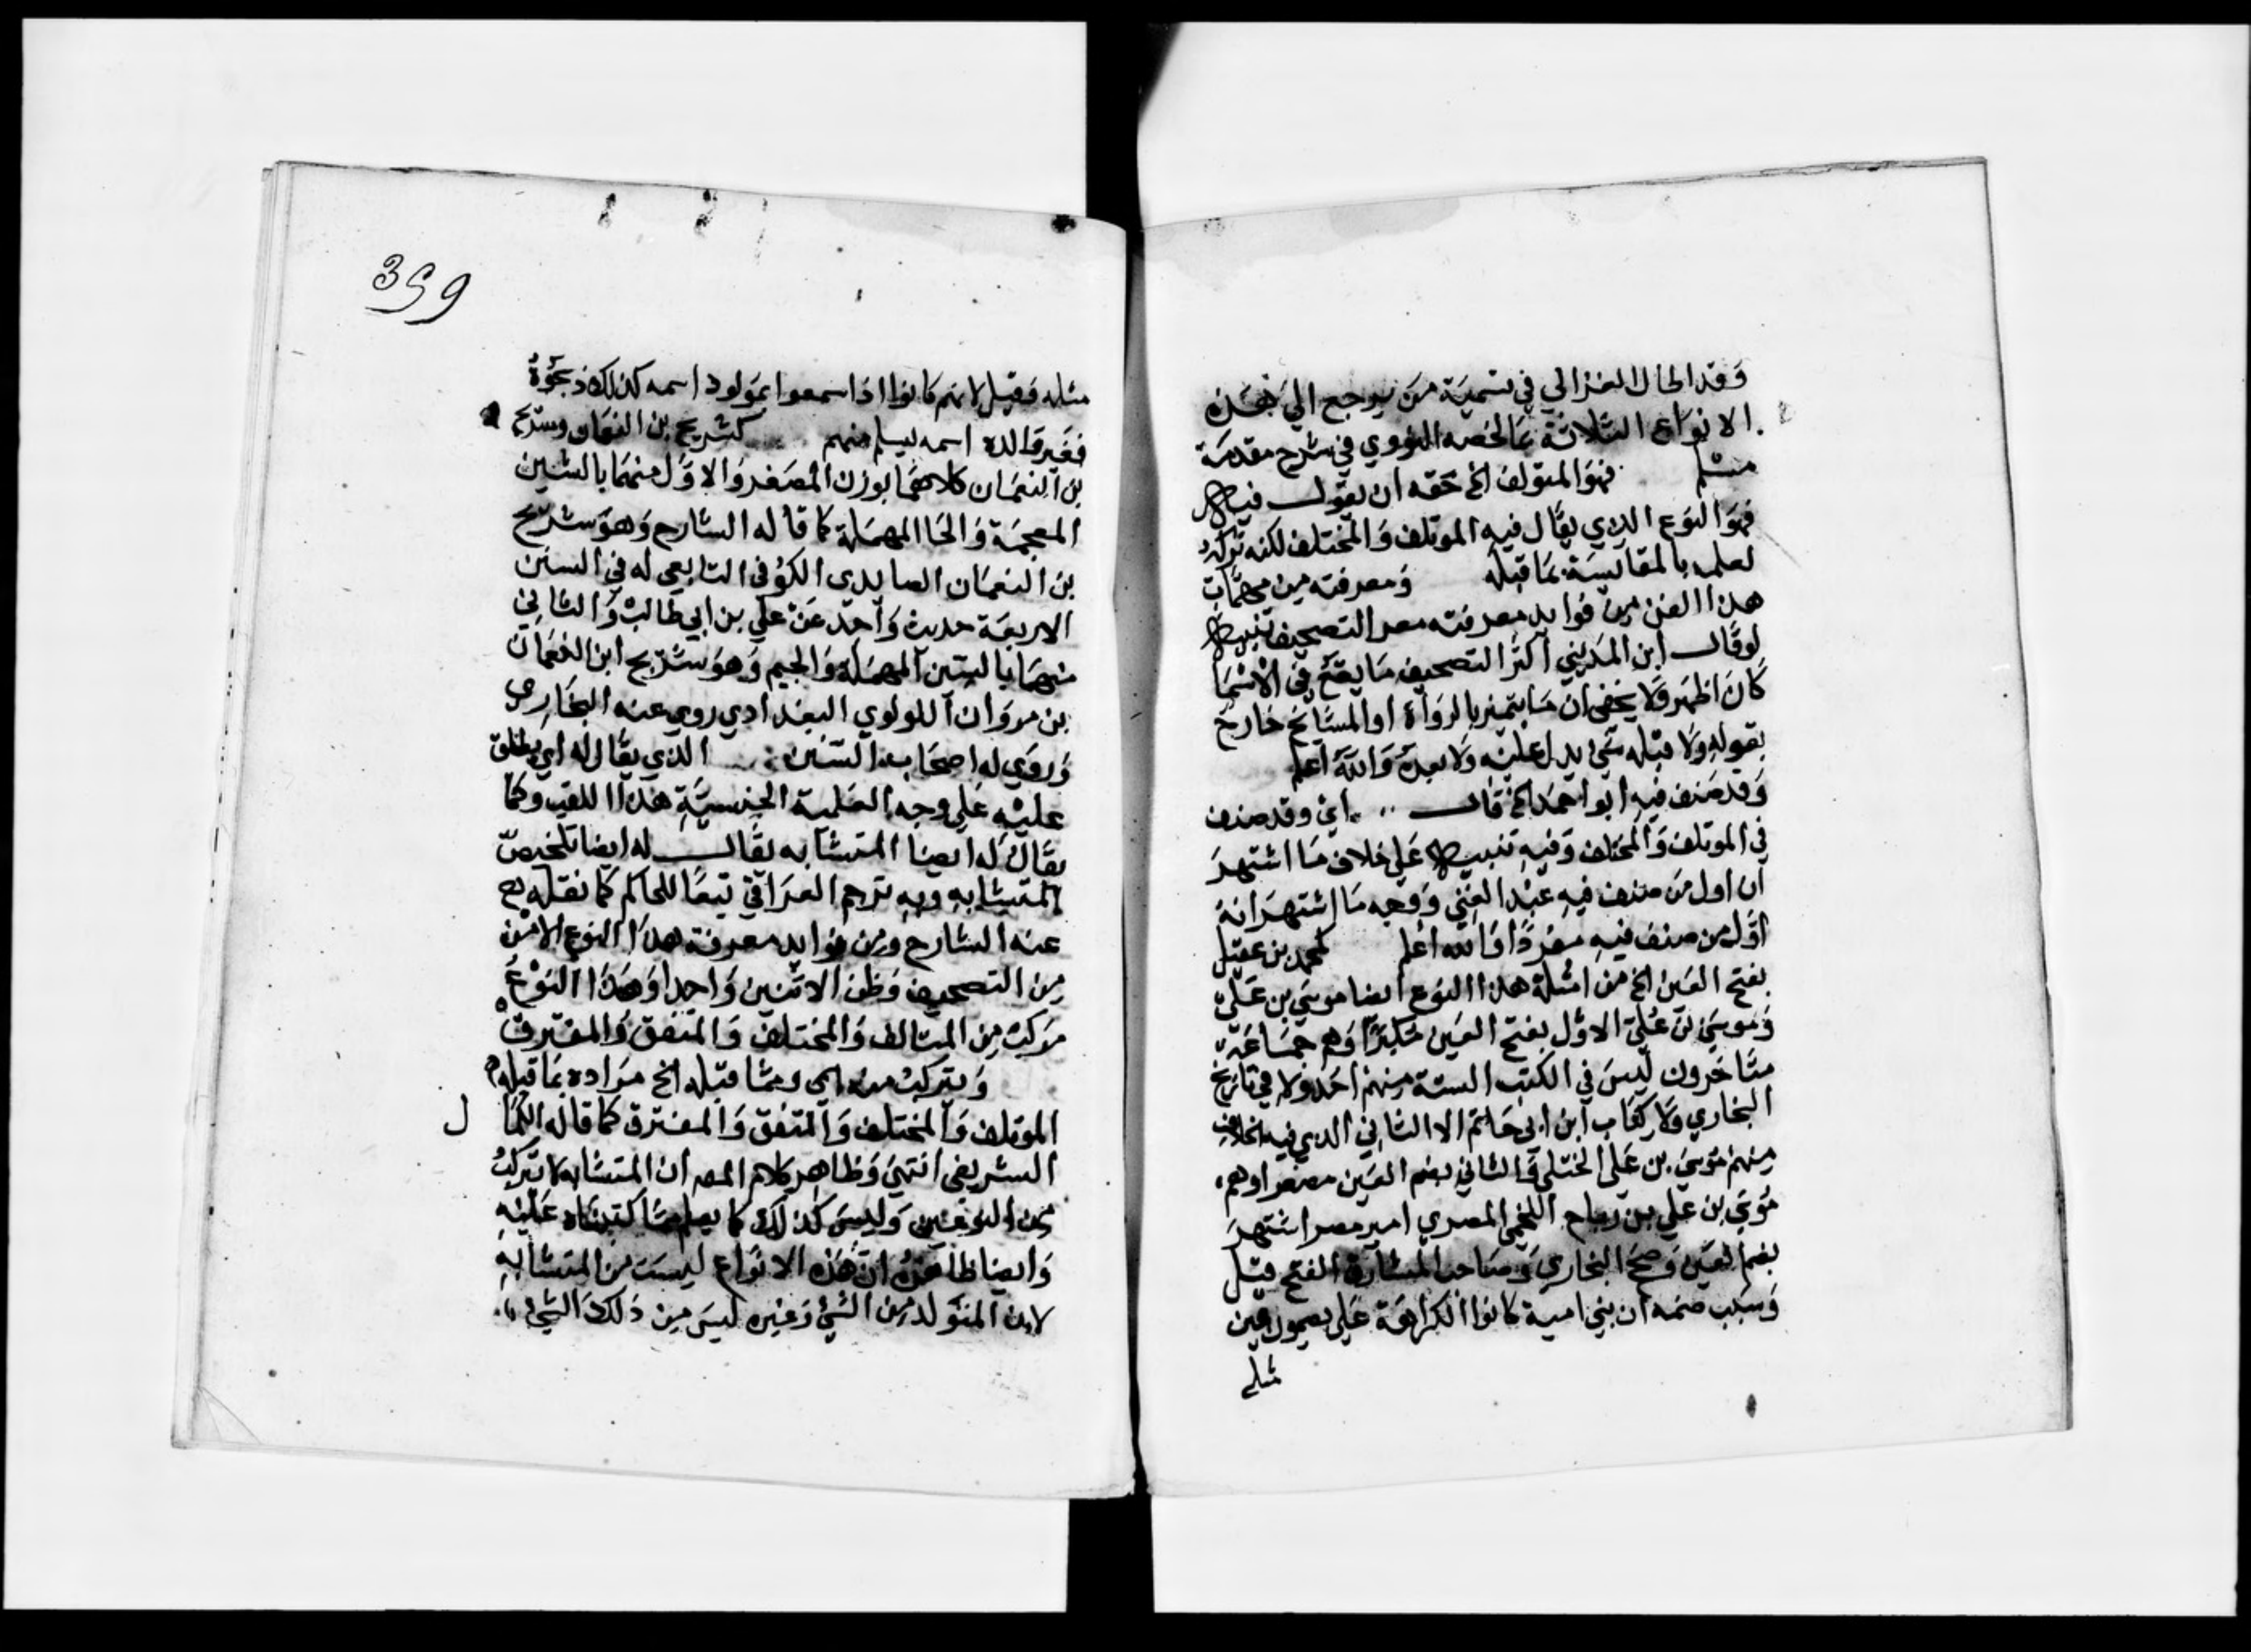 وقد اطال الغزالي في تسمية من يرجع الي هذه
الانواع الثلاثة بما لخصه النووي في شرح مقدمة
مسلم فهو المتولف الخ حقه ان يقول فيه
فهو النوع الذي يقال فيه الموتلف والمختلف لكنه تركه
لعلمه بالمقايسة بما قبله ومعرفته من مهمات
هذا الفن من فوايد معرفته التصحيف تنبيه
لو قال ابن المديني اكثر التصحيف ما يقع في الاسما
كان اظهر ولا يخفي ان ما يتميز بالرواة او المشايخ خارج
بقوله ولا قبله شي يدل عليه ولا بعده والله اعلم
وقد صنف فيه ابو احمد الخ قال اي وقد صنف
في الموتلف والمختلف وفيه تنبيه علي خلاف ما اشتهر
ان اول من صنف فيه عبد الغني ووجه ما اشتهر انه
اول من صنف فيه مفردا والله اعلم لمحمد بن عقيل
بفتح العين الخ من امثلة هذا النوع ايضا موسي بن علي
وموسي بن علي الاول بفتح العين مكبرا وهم جماعة
متاخرون ليس في الكتب الستة منهم احد ولا في تاريخ
البخاري ولا كتاب ابن ابي حاتم الا الثاني الذي فيه الخلاف
منهم موسي بن علي الختلي والثاني بضم العين مصغرا وهم
موسي بن علي بن رباح اللخمي المصري امير مصر اشتهر
بضم العين وصحح البخاري وصاحب المشارق الفتح قيل
وسبب ضمه ان بني امية كانوا لكراهة علي
مثله
399
مثله وقيل لانهم كانوا اذا سمعوا بمولود اسمه كذلك
فغير والده اسمه ليسلم منهم كشريح بن النعمان وسريج
بن النعمان كلاهما بوزن المصغر والاول منهما بالشين
المعجمة والحا المهملة كما قاله الشارح وهو شريح
بن النعمان الصايدي الكوفي التابعي له في السنن
الاربعة حديث واحد عن علي بن ابي طالب والثاني
منهما بالسين المهملة والجيم وهو سريج ابن النعمان
بن مروان اللولوي البغدادي روي عنه البخاري
وروي له اصحاب السنن الذي يقال له اي يطلق
عليه علي وجه العلمية الجنسية هذا اللقب وكما
يقال له ايضا المتشابه يقال له ايضا تلخيص
المتشابه وبه ترجم العراقي تبعا للحاكم كما نقله
عنه الشارح ومن فوايد معرفة هذا النوع الامن
من التصحيف وظن الاثنين واحدا وهذا النوع
مركب من المتالف والمختلف والمتفق والمفترق
ويتركب منه اي ومما قبله الخ مراده بما قبله
الموتلف والمختلف والمتفق والمفترق كما قاله الكما ل
الشريفي انتهي وظاهر كلام المص ان المتشابه لا تركب
من النوعين وليس كذلك كما يعلم مما كتبناه عليه
وايضا ان هذه الانواع ليست من المتشابه
لان المتولد من الشي وغيره ليس من ذلك الشي